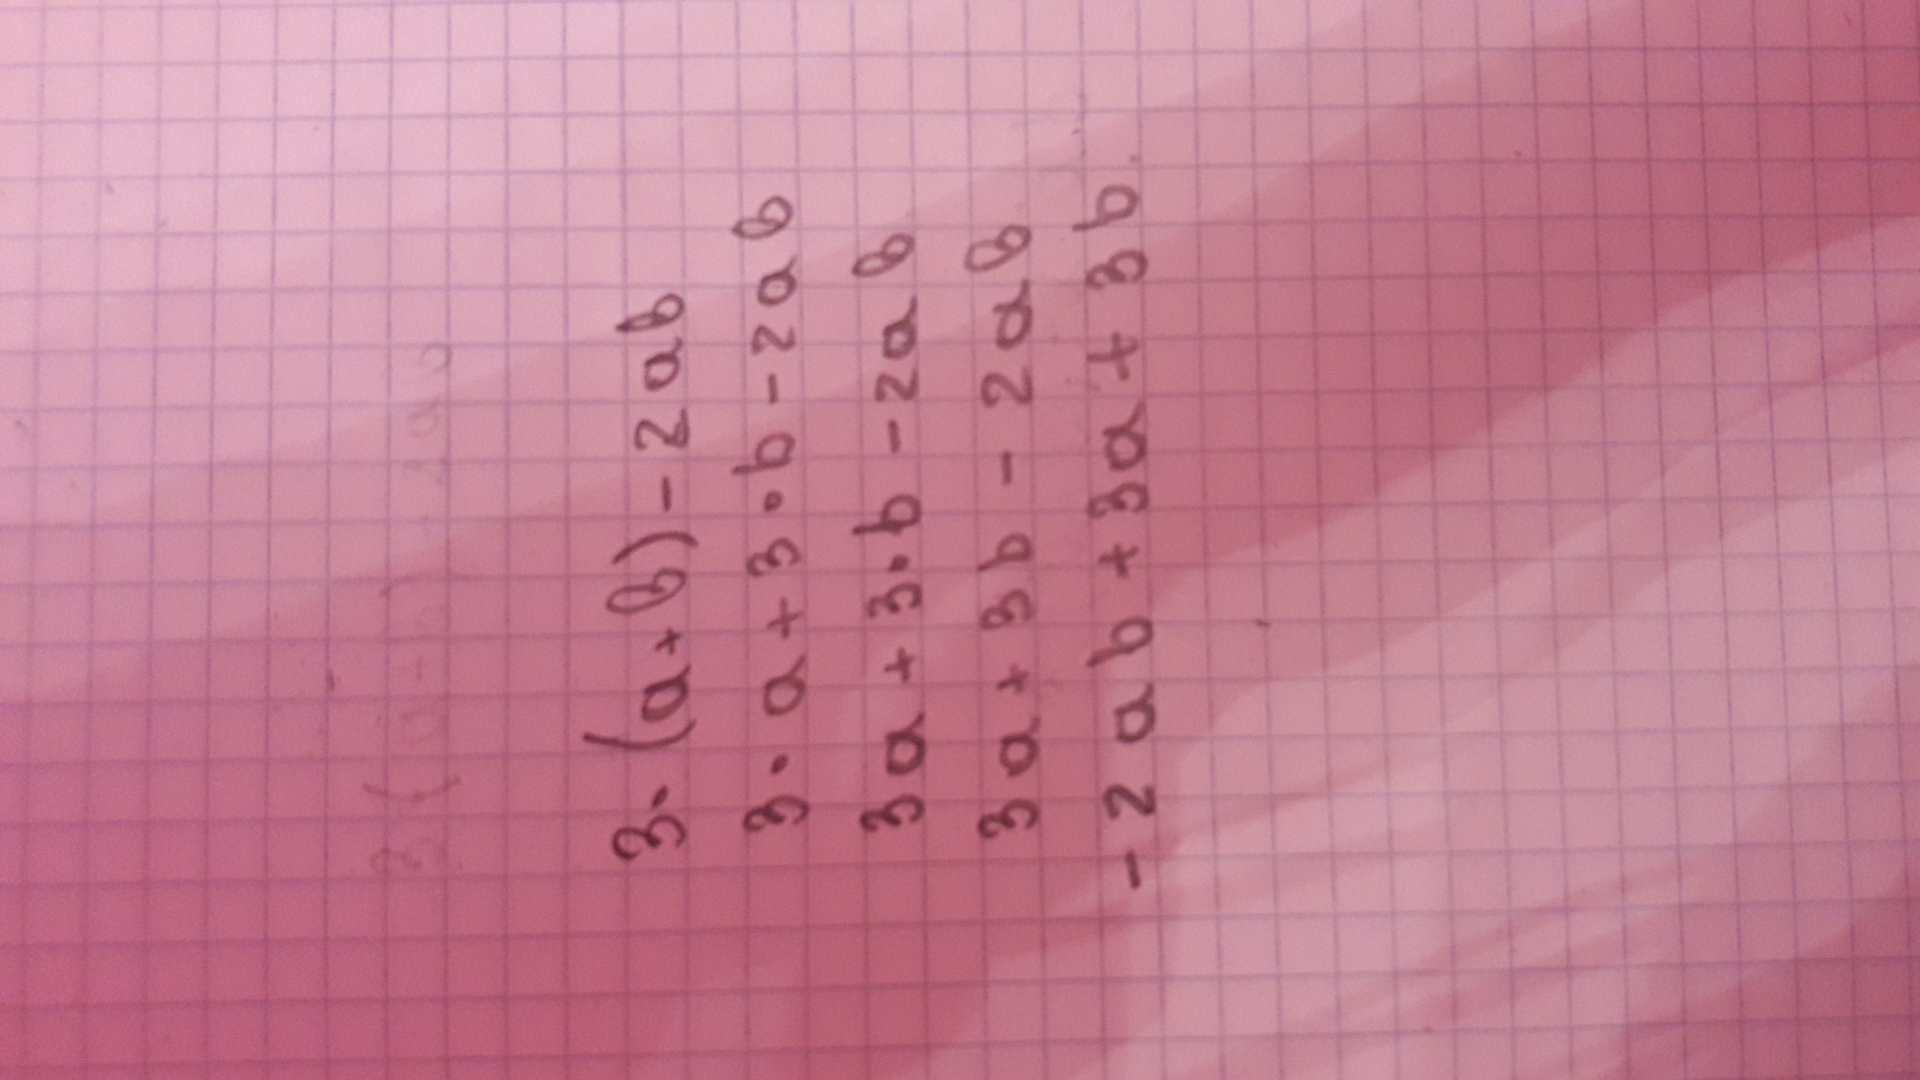 3·(a+b)-2ab
3·a+3·b-2ab
3a+3·b-2ab
3a+3b-2ab
-2ab+3a+3b